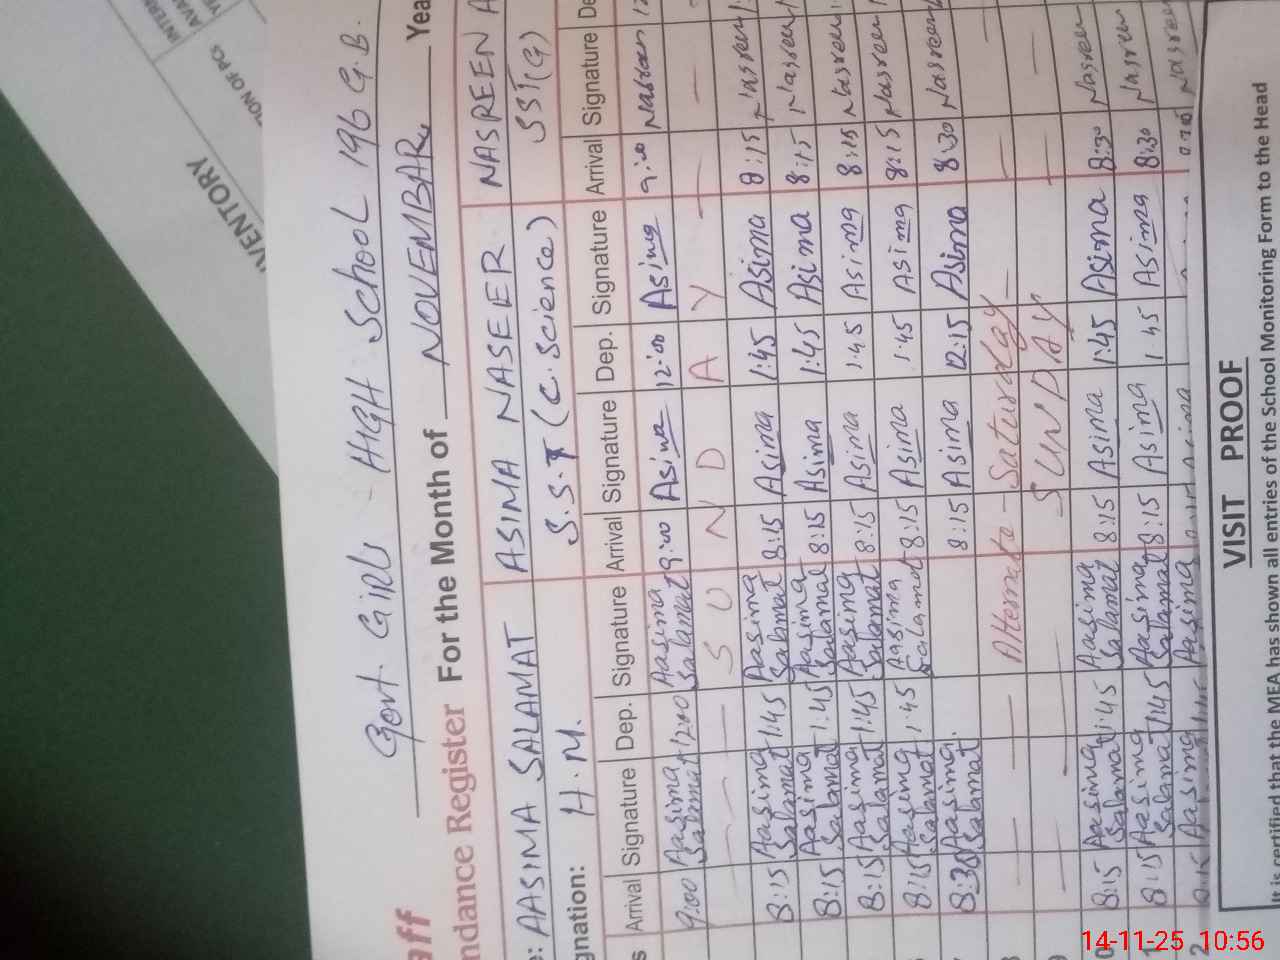 INVENTORY
TION OF PCs
Govt Girls High School 196 G.B.
ndance Register For the Month of NOVEMBAR, Yea
AASIMA SALAMAT ASIMA NASEER NASREEN A
gnation: H.M. S.S.T (C. Science) SST(G)
Arrival Signature Dep. Signature Arrival Signature Dep. Signature Arrival Signature De
9:00 Aasima Salamat 12:00 Aasima Salamat 9:00 Asima 12:00 Asima 9:00 Nasreen 12
— — — S U N D A Y — —
8:15 Aasima Salamat 1:45 Aasima Salamat 8:15 Asima 1:45 Asima 8:15 Nasreen
8:15 Aasima Salamat 1:45 Aasima Salamat 8:15 Asima 1:45 Asima 8:15 Nasreen
8:15 Aasima Salamat 1:45 Aasima Salamat 8:15 Asima 1:45 Asima 8:15 Nasreen
8:15 Aasima Salamat 1:45 Aasima Salamat 8:15 Asima 1:45 Asima 8:15 Nasreen
8:30 Aasima Salamat 8:15 Asima 12:15 Asima 8:30 Nasreen
— — — Alternate - Saturaday — — —
— — — SUNDAY — —
8:15 Aasima Salamat 1:45 Aasima Salamat 8:15 Asima 1:45 Asima 8:30 Nasreen
8:15 Aasima Salamat 1:45 Aasima Salamat 8:15 Asima 1:45 Asima 8:30 Nasreen
8:15 Aasima Aasima Asima Nasreen
VISIT PROOF
It is certified that the MEA has shown all entries of the School Monitoring Form to the Head
14-11-25 10:56